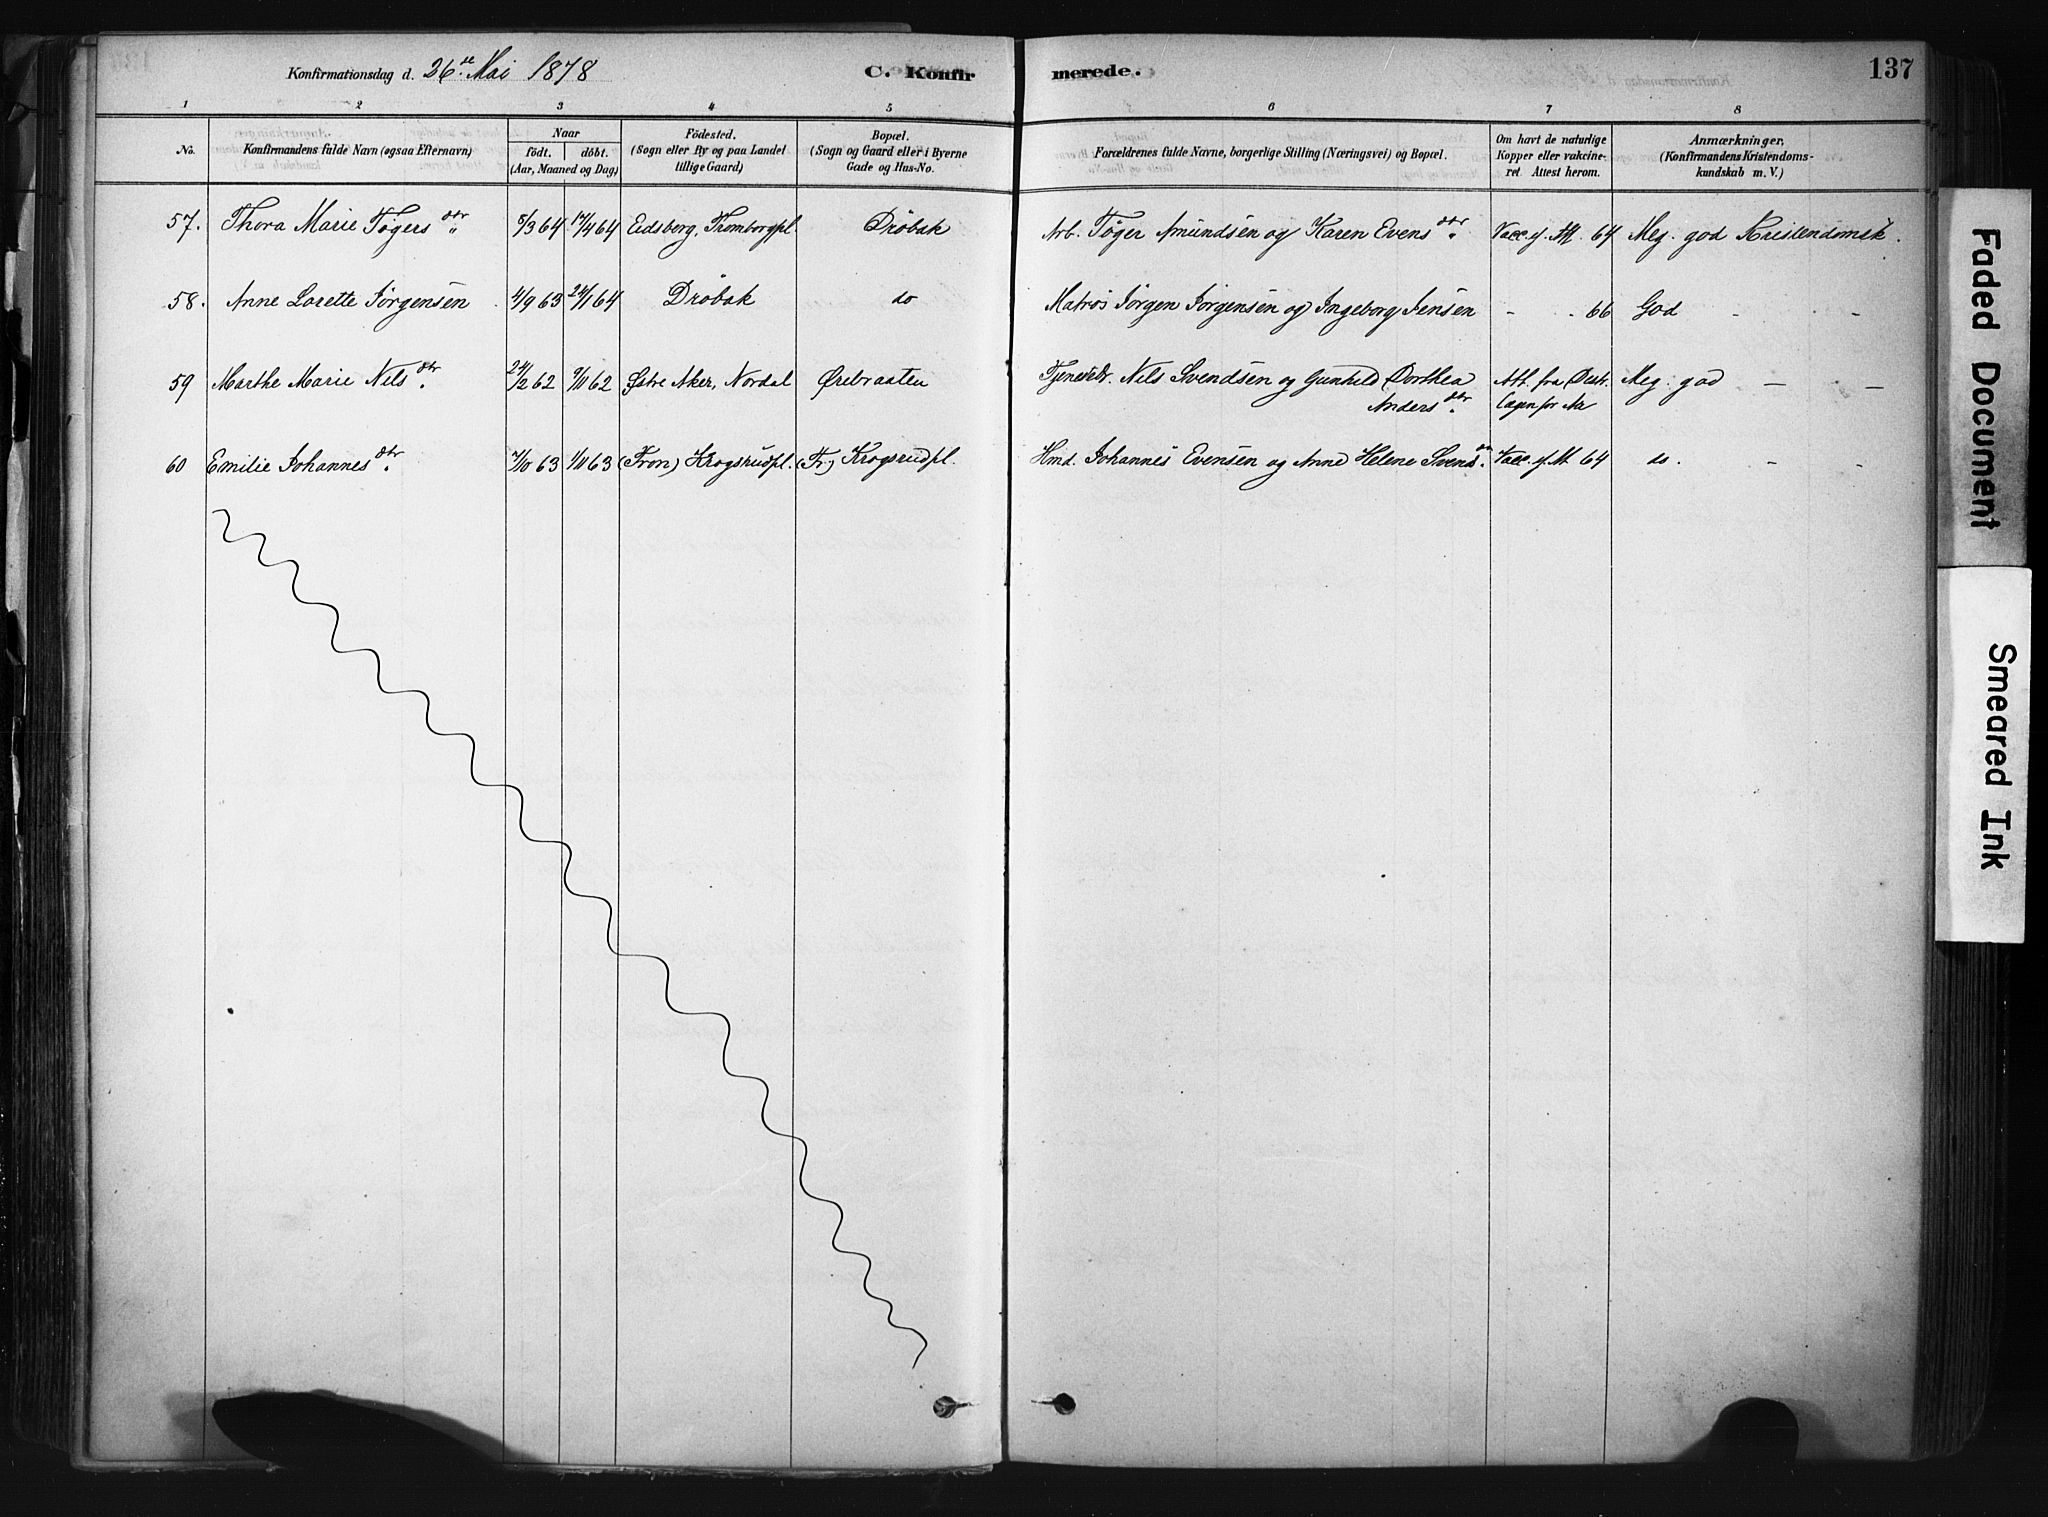 Konfirmationsdag d. 26de Mai 1878
C. Konfirmerede.
137
1 2 3 4 5 6 7 8
No.
Konfirmandens fulde Navn (ogsaa Efternavn)
Naar
født. døbt.
(Aar, Maaned og Dag)
Födested.
(Sogn eller By og paa Landet
tillige Gaard)
Bopæl.
(Sogn og Gaard eller i Byerne
Gade og Hus-No.
Forældrenes fulde Navne, borgerlige Stilling (Næringsvei) og Bopæl.
Om havt de naturlige
Kopper eller vakcine-
ret. Attest herom.
Anmærkninger,
(Konfirmandens Kristendoms-
kundskab m. V.)
57. Thora Marie Tøgers dtr 5/3 64 17/4 64 Eidsberg, Tromborgpl Drøbak Arb. Tøger Amundsen og Karen Evens dtr Vacc. y. Att. 64 Meg. god Kristendomsk.
58. Anne Lorette Jørgensen 4/9 63 24/1 64 Drøbak do Matros Jørgen Jørgensen og Ingeborg Jensen - - 66 God - -
59 Marthe Marie Nils dtr 24/2 62 9/11 62 Østre Aker, Nordal Ørebraaten Nils Svendsen og Gunhild Dorthea Att. fra Distr. Meg. god - -
Anders dtr Lægen for
60 Emilie Johannes dtr 7/10 63 1/11 63 (Fron) Krogsrudpl. (Fr.) Krogsrudpl. Hmd. Johannes Evensen og Anne Helene Svends dtr Vacc. y. Att. 64 do. - -
Faded Document
Smeared Ink